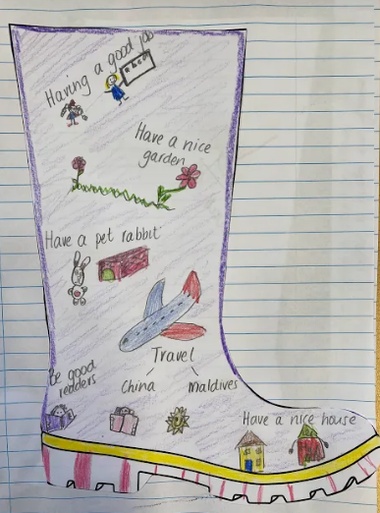 Having a good job
Have a nice
garden
Have a pet rabbit
Travel
China
Maldives
Be good
readers
Have a nice house